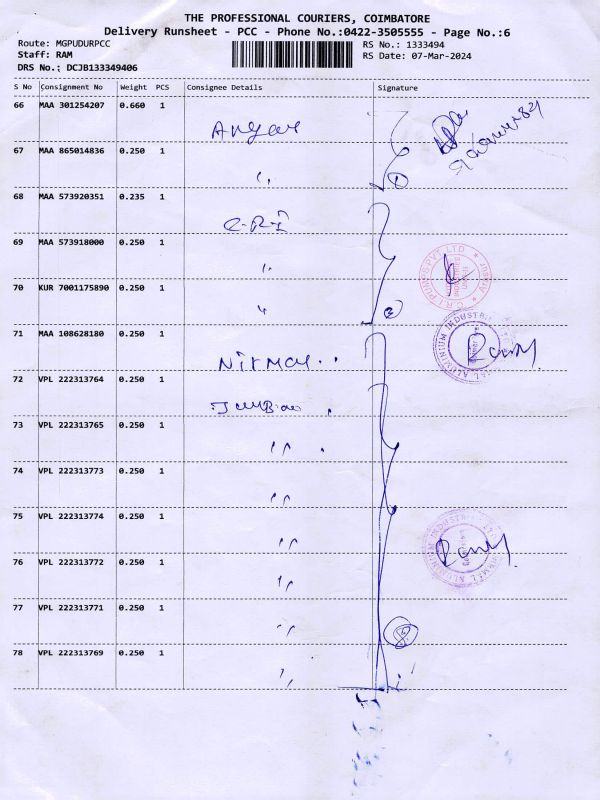 THE PROFESSIONAL COURIERS, COIMBATORE
Delivery Runsheet - PCC - Phone No.:0422-3505555 - Page No.:6
Route: MGPUDURPCC RS No.: 1333494
Staff: RAM RS Date: 07-Mar-2024
DRS No.; DCJB133349406
S No Consignment No Weight PCS Consignee Details Signature
66 MAA 301254207 0.660 1
67 MAA 865014836 0.250 1 〃
68 MAA 573920351 0.235 1 C.R.I
69 MAA 573918000 0.250 1 〃
70 KUR 7001175890 0.250 1 〃
71 MAA 108628180 0.250 1 Nirmal
72 VPL 222313764 0.250 1
73 VPL 222313765 0.250 1 〃
74 VPL 222313773 0.250 1 〃
75 VPL 222313774 0.250 1 〃
76 VPL 222313772 0.250 1 〃
77 VPL 222313771 0.250 1 〃
78 VPL 222313769 0.250 1 〃